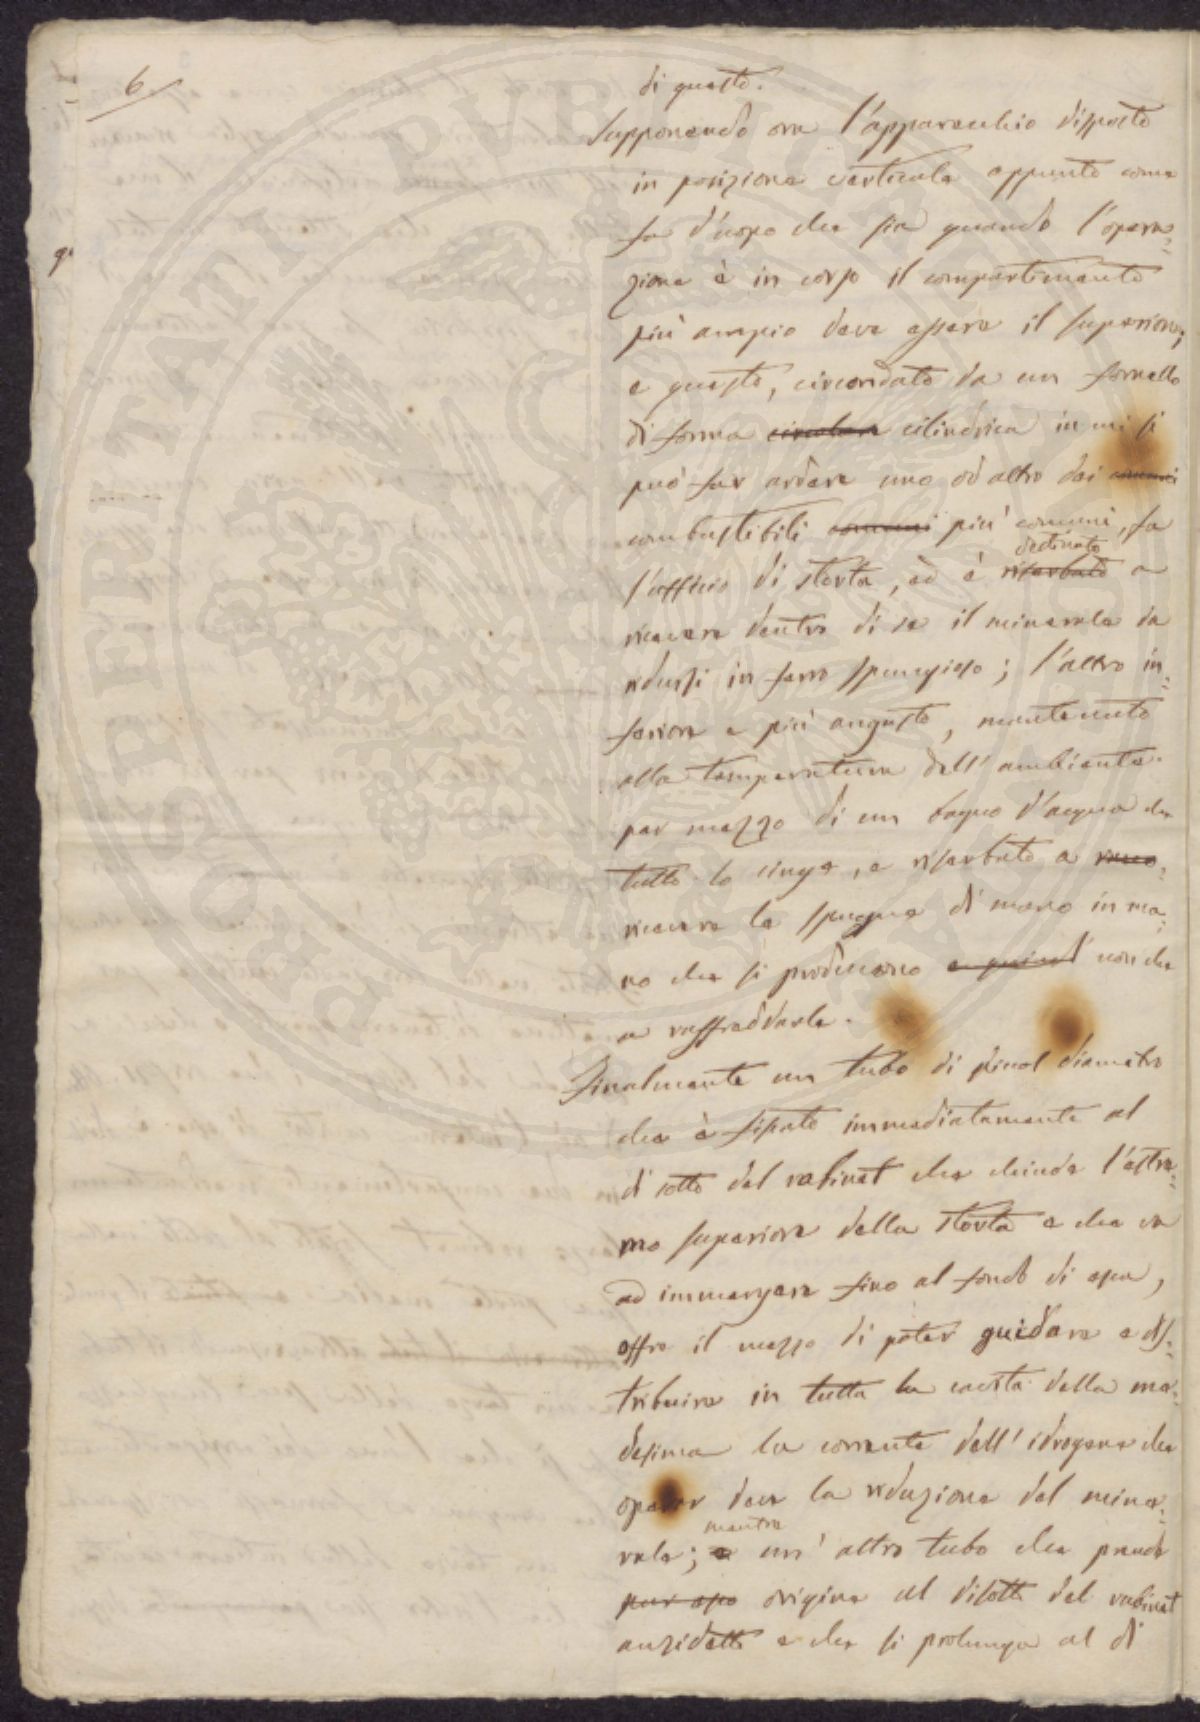 6.
di questo.
Supponendo ora l'apparecchio disposto
in posizione verticale appunto come
fa d'uopo che sia quando l'opera-
zione è in corso il compartimento
più ampio deve essere il superiore;
e questo, circondato da un fornello
di forma circolare cilindrica in cui si
può far ardere uno od altro dei comuni
combustibili comuni più comuni, fa
destinato
l'ufficio di storta, ed è riserbato a
ricevere dentro di se il minerale da
ridursi in ferro spungioso; l'altro in-
feriore e più angusto, mantenuto
alla temperatura dell'ambiente
per mezzo di un bagno d'acqua che
tutto lo cinge, e riserbato a rice-
ricevere le spugne di mano in ma-
no che si producono e quindi non che
a raffreddarle.
Finalmente un tubo di picol diametro
che è fissato immediatamente al
di sotto del rabinet che chiude l'estre-
mo superiore della storta e che va
ad immergere fino al fondo di essa,
offre il mezzo di poter guidare e dis-
tribuire in tutta la cavità della me-
desima la corrente dell'idrogene che
operar deve la riduzione del mine-
mentre
rale; e un' altro tubo che prende
pur esso origine al disotto del rabinet
anzidetto e che si prolunga al di
PROSPERITATI PVBLICAE